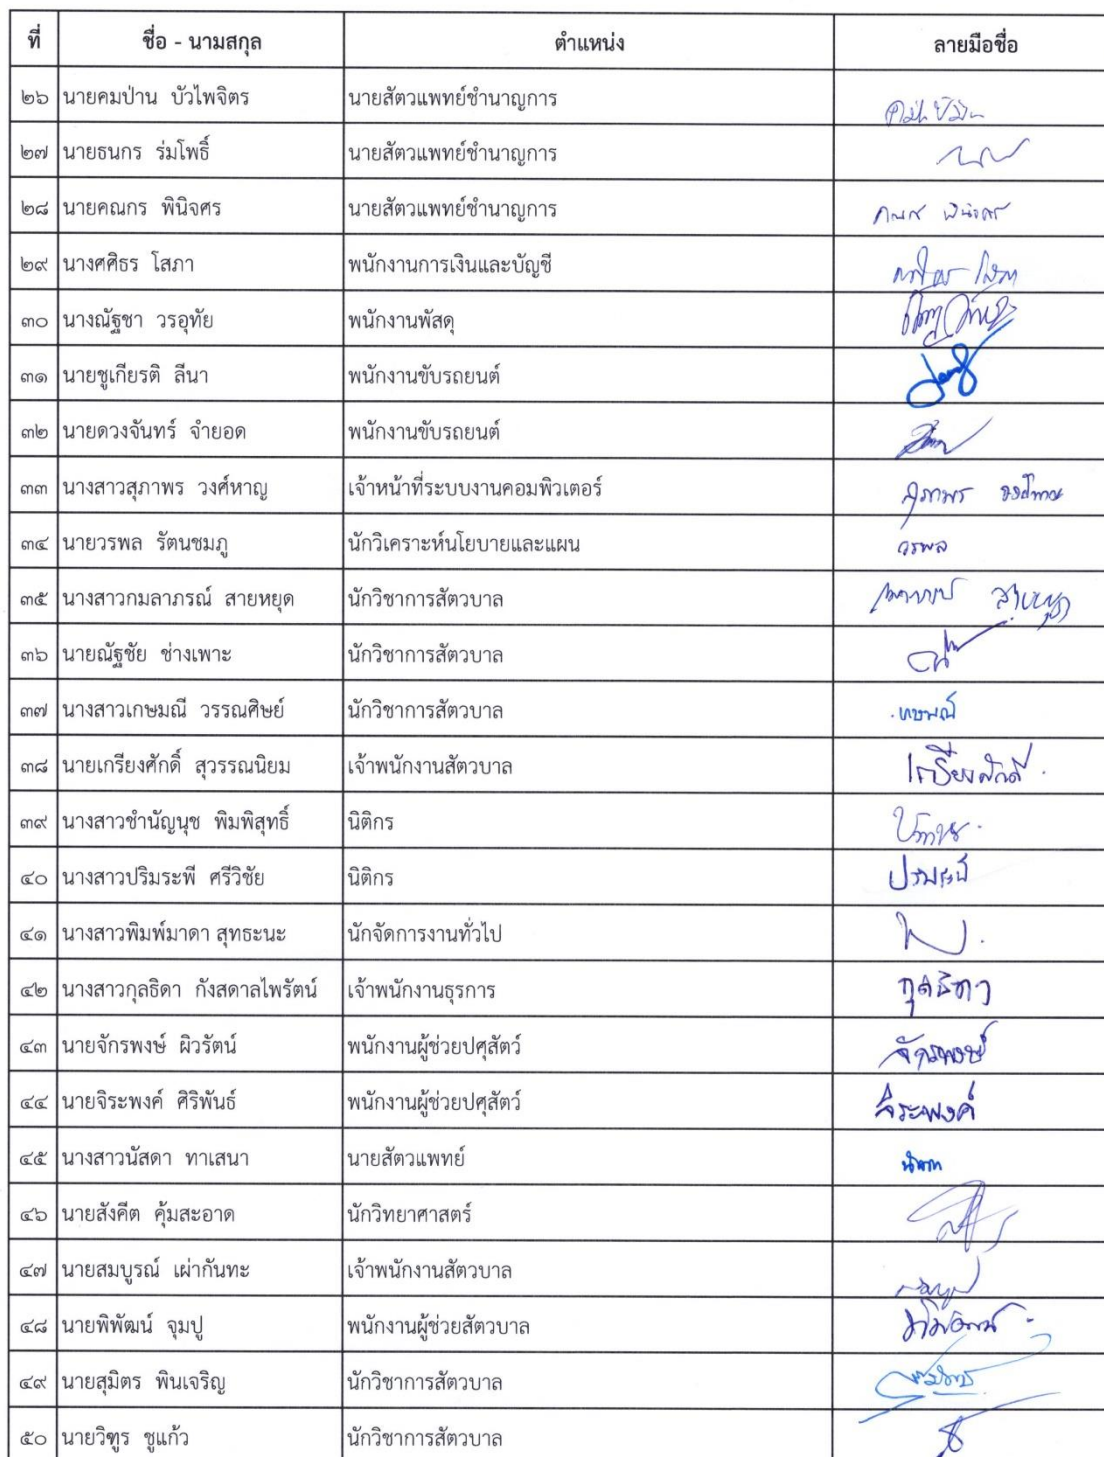 ที่ ชื่อ - นามสกุล ตำแหน่ง ลายมือชื่อ
๒๖ นายคมป่าน บัวไพจิตร นายสัตวแพทย์ชำนาญการ
๒๗ นายธนกร ร่มโพธิ์ นายสัตวแพทย์ชำนาญการ
๒๘ นายคณกร พินิจศร นายสัตวแพทย์ชำนาญการ
๒๙ นางศศิธร โสภา พนักงานการเงินและบัญชี
๓๐ นางณัฐชา วรอุทัย พนักงานพัสดุ
๓๑ นายชูเกียรติ ลีนา พนักงานขับรถยนต์
๓๒ นายดวงจันทร์ จำยอด พนักงานขับรถยนต์
๓๓ นางสาวสุภาพร วงศ์หาญ เจ้าหน้าที่ระบบงานคอมพิวเตอร์ สุภาพร วงศ์หาญ
๓๔ นายวรพล รัตนชมภู นักวิเคราะห์นโยบายและแผน วรพล
๓๕ นางสาวกมลาภรณ์ สายหยุด นักวิชาการสัตวบาล
๓๖ นายณัฐชัย ช่างเพาะ นักวิชาการสัตวบาล
๓๗ นางสาวเกษมณี วรรณศิษย์ นักวิชาการสัตวบาล เกษมณี
๓๘ นายเกรียงศักดิ์ สุวรรณนิยม เจ้าพนักงานสัตวบาล เกรียงศักดิ์
๓๙ นางสาวชำนัญนุช พิมพิสุทธิ์ นิติกร
๔๐ นางสาวปริมระพี ศรีวิชัย นิติกร ปริมระพี
๔๑ นางสาวพิมพ์มาดา สุทธะนะ นักจัดการงานทั่วไป
๔๒ นางสาวกุลธิดา กังสดาลไพรัตน์ เจ้าพนักงานธุรการ กุลธิดา
๔๓ นายจักรพงษ์ ผิวรัตน์ พนักงานผู้ช่วยปศุสัตว์ จักรพงษ์
๔๔ นายจิระพงค์ ศิริพันธ์ พนักงานผู้ช่วยปศุสัตว์ จิระพงค์
๔๕ นางสาวนัสดา ทาเสนา นายสัตวแพทย์
๔๖ นายสังคีต คุ้มสะอาด นักวิทยาศาสตร์
๔๗ นายสมบูรณ์ เผ่ากันทะ เจ้าพนักงานสัตวบาล
๔๘ นายพิพัฒน์ จุมปู พนักงานผู้ช่วยสัตวบาล
๔๙ นายสุมิตร พินเจริญ นักวิชาการสัตวบาล
๕๐ นายวิฑูร ชูแก้ว นักวิชาการสัตวบาล